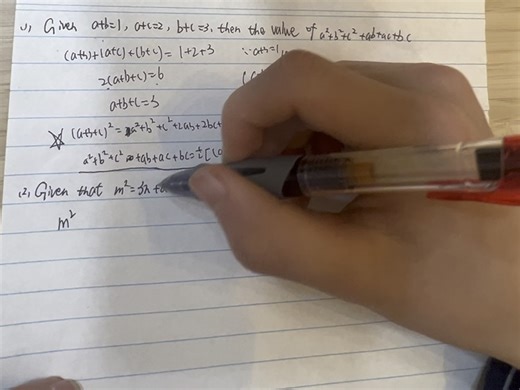 (1) Given a+b=1, a+c=2, b+c=3, then the value of a²+b²+c²+ab+ac+bc
(a+b)+(a+c)+(b+c)=1+2+3 ∵a+b=1
2(a+b+c)=6
a+b+c=3
(a+b+c)²=a²+b²+c²+2ab+2bc+
a²+b²+c²+ab+ac+bc=½[(a
(2) Given that m²=3n+
m²